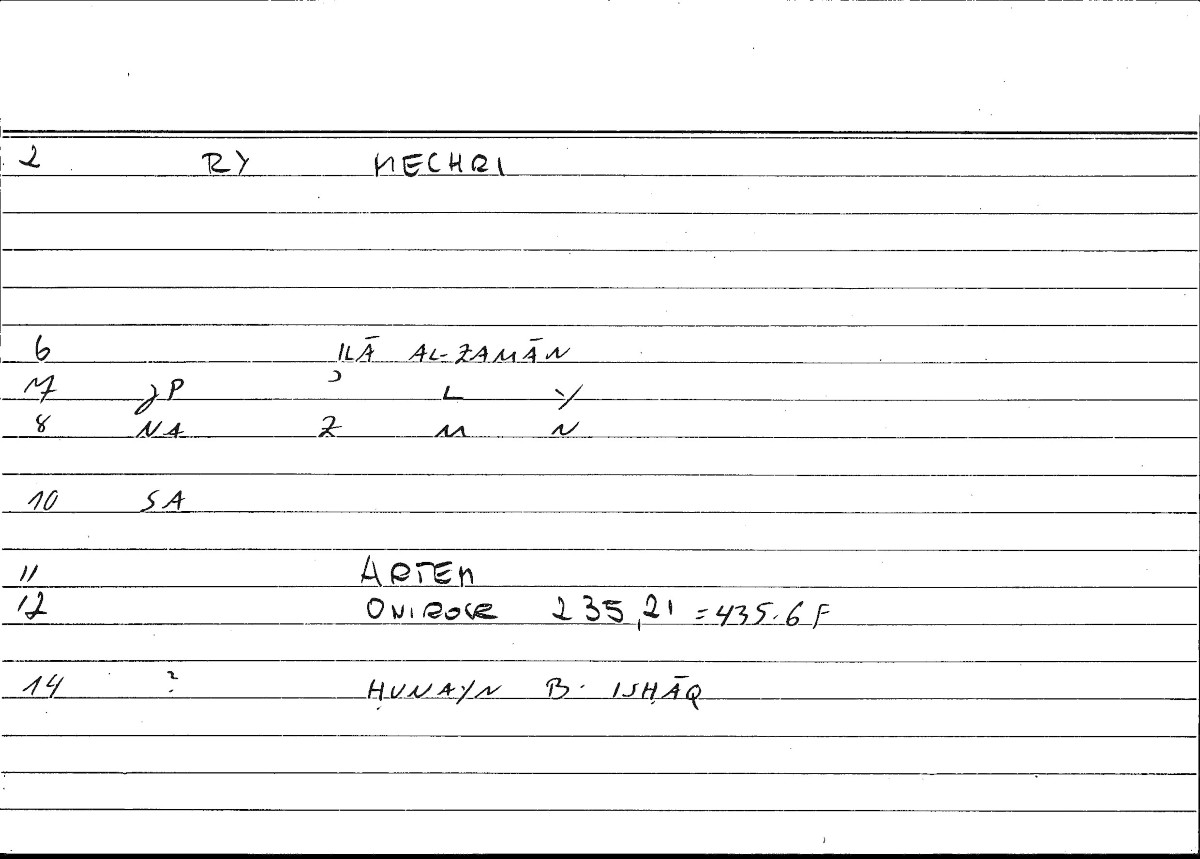 2 RY MECHRI
6 ILĀ AL-ZAMĀN
7 JP ʾ L Y
8 NA Z M N
10 SA
11 ARTEM
12 ONIROCR 235,21 = 435.6 F
14 ? ḤUNAYN B. ISḤĀQ